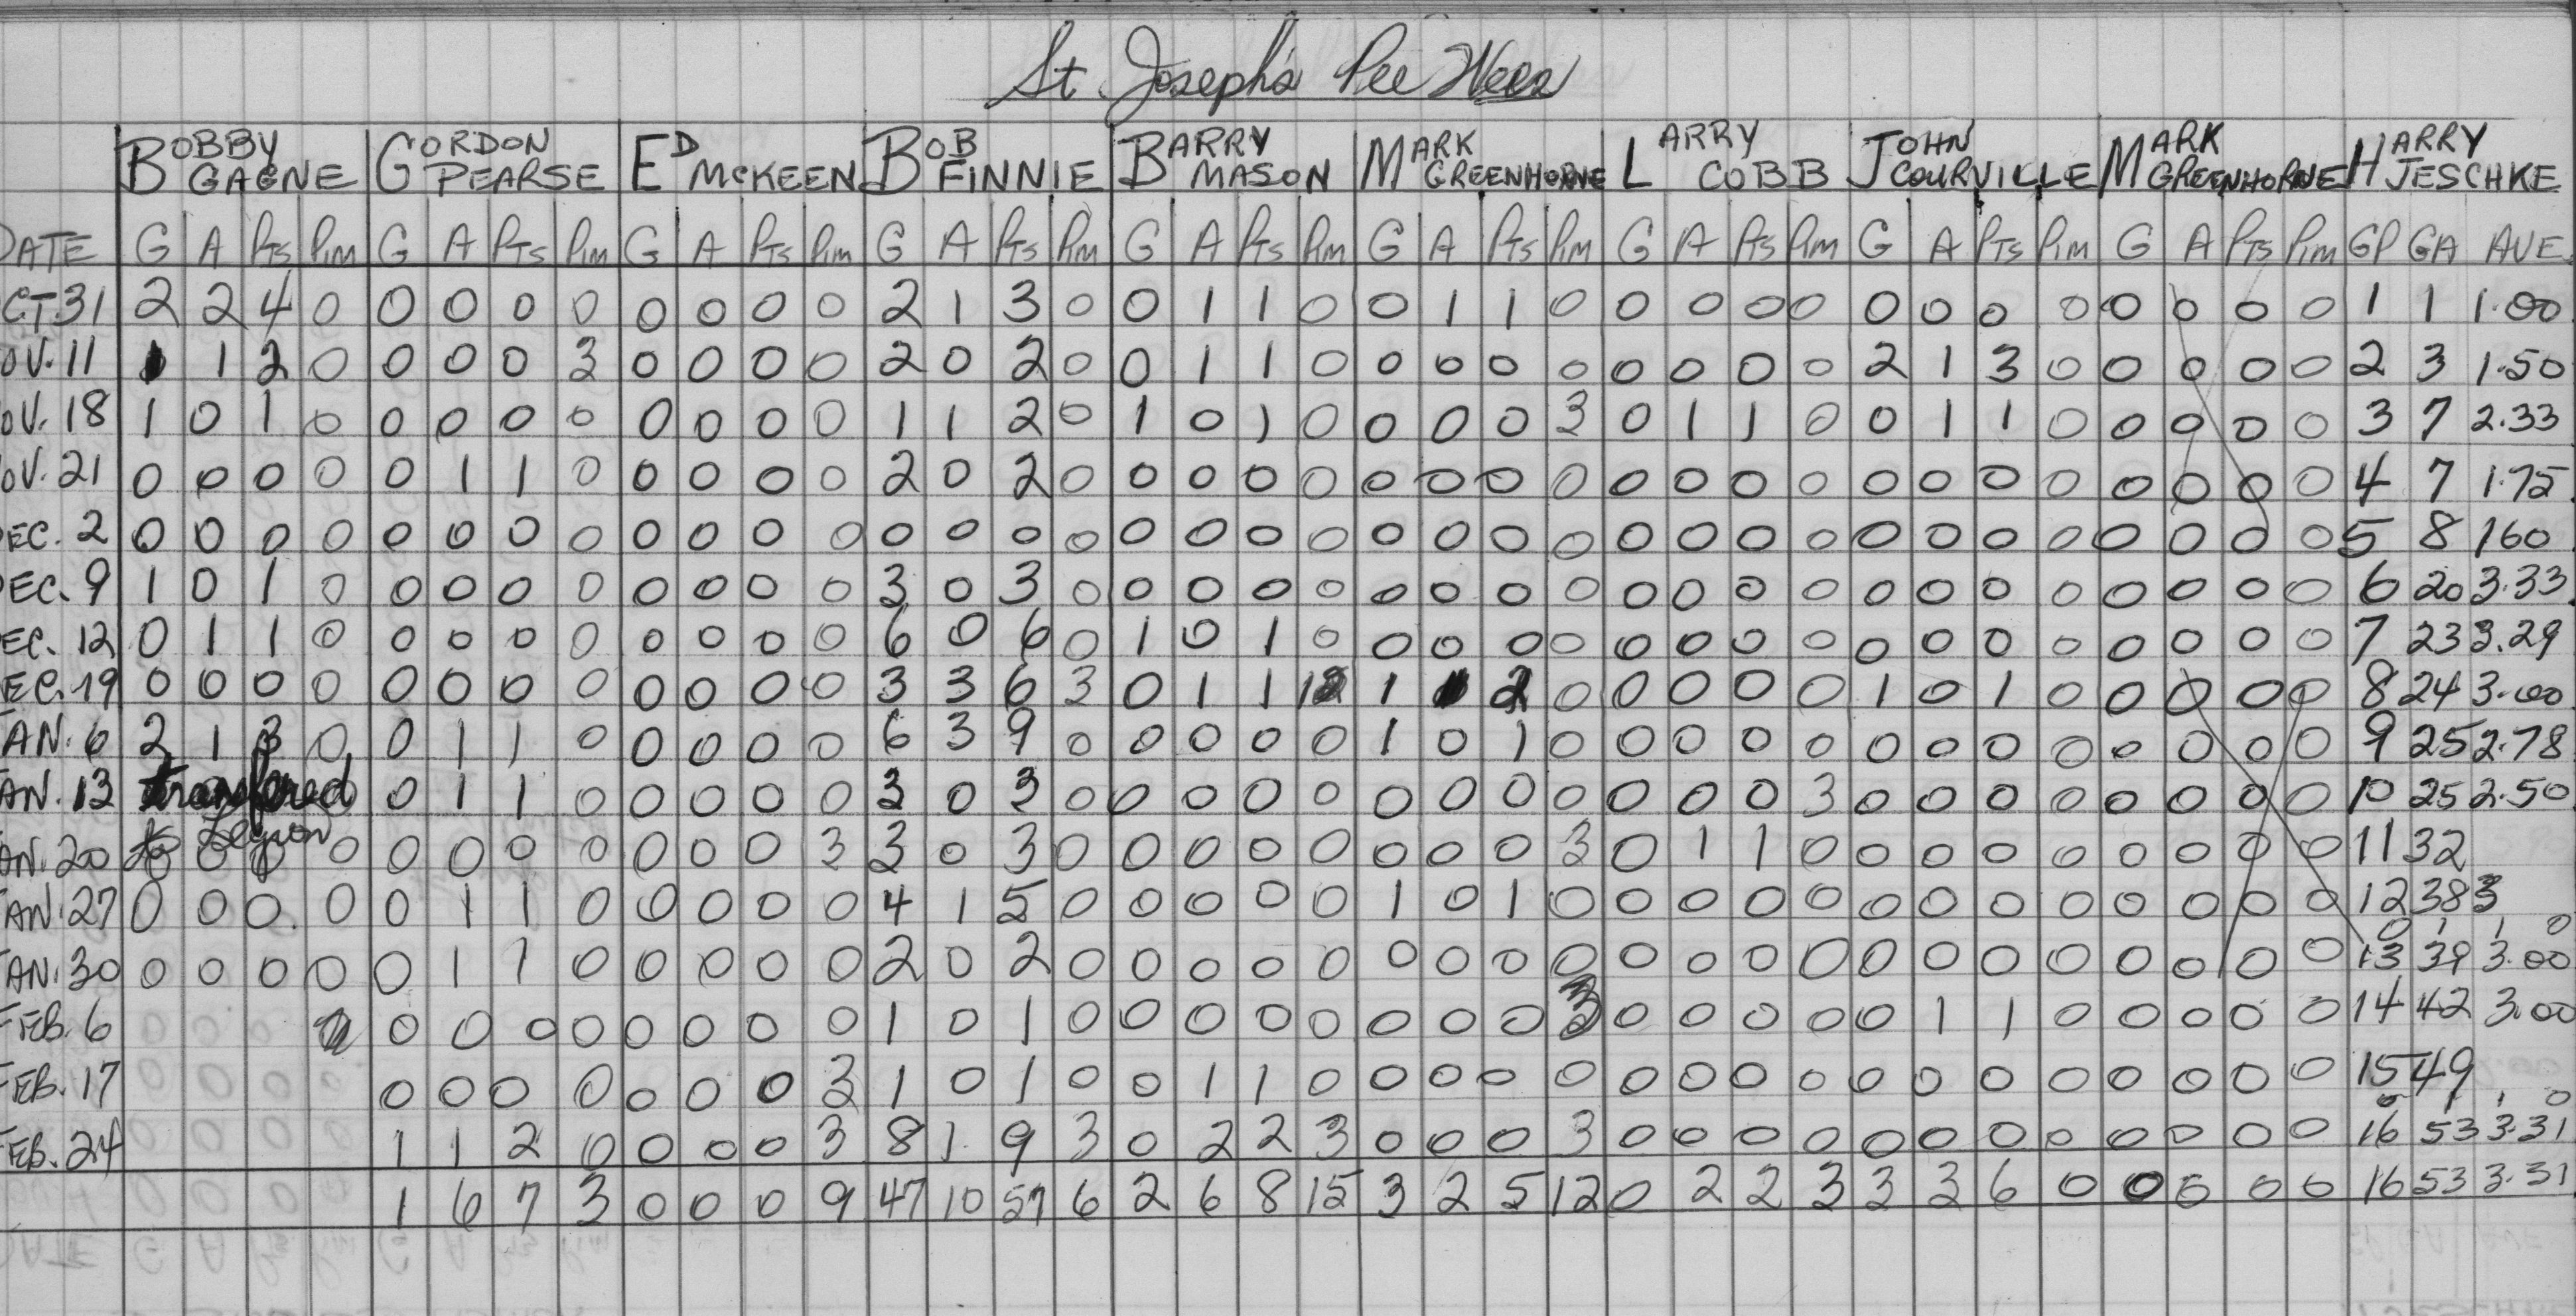 St. Joseph's Pee Wees
BOBBY GAGNE GORDON PEARSE ED MCKEEN BOB FINNIE BARRY MASON MARK GREENHORNE LARRY COBB JOHN COURVILLE MARK GREENHORNE HARRY JESCHKE
DATE G A Pts Pim G A Pts Pim G A Pts Pim G A Pts Pim G A Pts Pim G A Pts Pim G A Pts Pim G A Pts Pim G A Pts Pim GP GA AVE.
CT.31 2 2 4 0 0 0 0 0 0 0 0 0 2 1 3 0 0 1 1 0 0 1 1 0 0 0 0 0 0 0 0 0 0 0 0 0 1 1 1.00
OV. 11 1 1 2 0 0 0 0 3 0 0 0 0 2 0 2 0 0 1 1 0 0 0 0 0 0 0 0 0 2 1 3 0 0 0 0 0 2 3 1.50
OV. 18 1 0 1 0 0 0 0 0 0 0 0 0 1 1 2 0 1 0 1 0 0 0 0 3 0 1 1 0 0 1 1 0 0 0 0 0 3 7 2.33
OV. 21 0 0 0 0 0 1 1 0 0 0 0 0 2 0 2 0 0 0 0 0 0 0 0 0 0 0 0 0 0 0 0 0 0 0 0 0 4 7 1.75
EC. 2 0 0 0 0 0 0 0 0 0 0 0 0 0 0 0 0 0 0 0 0 0 0 0 0 0 0 0 0 0 0 0 0 0 0 0 0 5 8 160
EC. 9 1 0 1 0 0 0 0 0 0 0 0 0 3 0 3 0 0 0 0 0 0 0 0 0 0 0 0 0 0 0 0 0 0 0 0 0 6 20 3.33
EC. 12 0 1 1 0 0 0 0 0 0 0 0 0 6 0 6 0 1 0 1 0 0 0 0 0 0 0 0 0 0 0 0 0 0 0 0 0 7 23 3.29
EC. 19 0 0 0 0 0 0 0 0 0 0 0 0 3 3 6 3 0 1 1 12 1 1 2 0 0 0 0 0 1 0 1 0 0 0 0 0 8 24 3.00
AN. 6 2 1 3 0 0 1 1 0 0 0 0 0 6 3 9 0 0 0 0 0 1 0 1 0 0 0 0 0 0 0 0 0 0 0 0 0 9 25 2.78
AN. 13 transfered 0 1 1 0 0 0 0 0 3 0 3 0 0 0 0 0 0 0 0 0 0 0 0 3 0 0 0 0 0 0 0 0 10 25 2.50
to Legion
AN. 20 0 0 0 0 0 0 0 0 0 0 0 3 3 0 3 0 0 0 0 0 0 0 0 3 0 1 1 0 0 0 0 0 0 0 0 0 11 32
AN. 27 0 0 0 0 0 1 1 0 0 0 0 0 4 1 5 0 0 0 0 0 1 0 1 0 0 0 0 0 0 0 0 0 0 0 0 0 12 38 3
0 1 1 0
AN. 30 0 0 0 0 0 1 1 0 0 0 0 0 2 0 2 0 0 0 0 0 0 0 0 0 0 0 0 0 0 0 0 0 0 0 0 0 13 39 3.00
FEB. 6 0 0 0 0 0 0 0 0 1 0 1 0 0 0 0 0 0 0 0 3 0 0 0 0 0 1 1 0 0 0 0 0 14 42 3.00
FEB. 17 0 0 0 0 0 0 0 3 1 0 1 0 0 1 1 0 0 0 0 0 0 0 0 0 0 0 0 0 0 0 0 0 15 49
0 1 1 0
FEB. 24 1 1 2 0 0 0 0 3 8 1 9 3 0 2 2 3 0 0 0 3 0 0 0 0 0 0 0 0 0 0 0 0 16 53 3.31
1 6 7 3 0 0 0 9 47 10 57 6 2 6 8 15 3 2 5 12 0 2 2 3 3 3 6 0 0 0 0 0 16 53 3.31